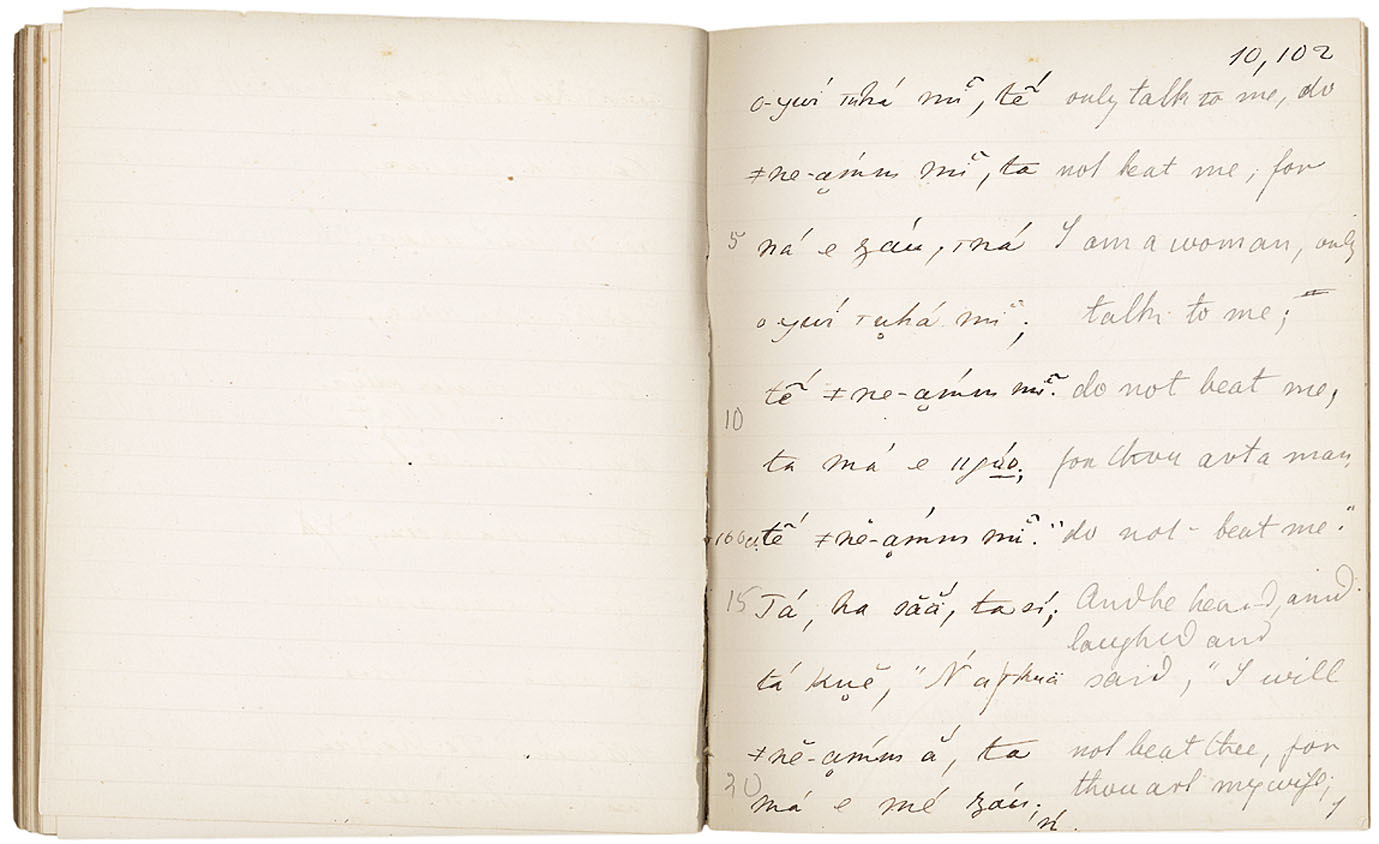 10,102
o-ywí ıuhá mĩ̆, tẽ́ only talk to me, do
ǂne-ą́mm mĩ̆, ta not beat me, for
5 ná e záú, ıná I am a woman, only
o-ywí ıųhá mĩ̆; talk to me;
tẽ́ ǂne-ą́mm mĩ̆. do not beat me,
10
ta má e ııgáo; for thou art a man,
tẽ́ ǂnĕ-ą́mm mĩ̆." do not beat me."
15 Tá, ha săắ, ta sí; And he heard, and
laughed and
tá kųĕ, "Ń a said, "I will
ǂnĕ-ą́mm ắ, ta not beat thee, for
20 má e mé záú; thou art my wife;